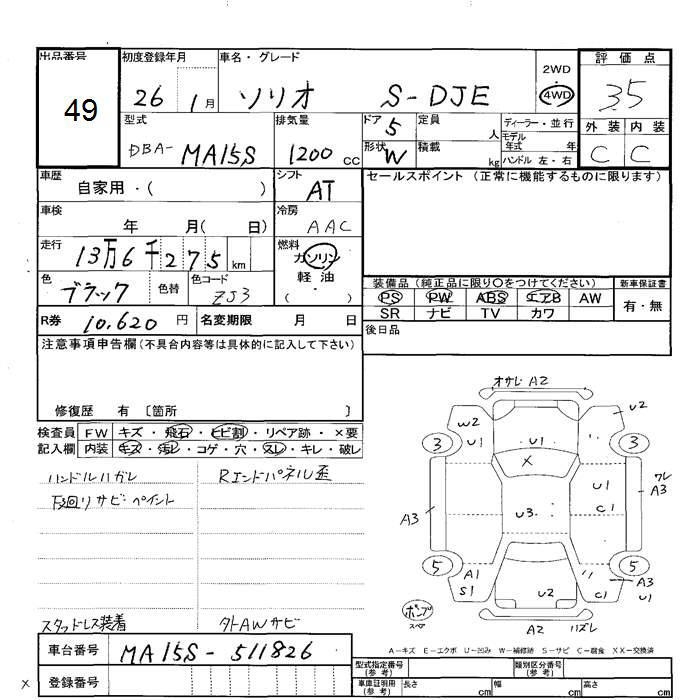 出品番号 初度登録年月 車名・グレード 2WD 評価点
49 26 1月 ソリオ S-DJE 4WD 3.5
型式 排気量 ドア 5 定員 人 ディーラー・並行 外装 内装
DBA- MA15S 1200cc 形状 W 積載 kg モデル年式 年 C C
ハンドル 左・右
車歴 自家用・( ) シフト AT セールスポイント (正常に機能するものに限ります)
車検 年 月( 日) 冷房 AAC
走行 13万6千275km 燃料 ガソリン
色 ブラック 色替 色コード ZJ3 軽油 ( )
装備品 (純正品に限り○をつけてください) 新車保証書
PS PW ABS エアB AW 有・無
R券 10,620円 名変期限 月 日 SR ナビ TV カワ
注意事項申告欄(不具合内容等は具体的に記入して下さい) 後日品
修復歴 有 〔箇所 〕
検査員 FW キズ・飛石・ヒビ割・リペア跡・×要
記入欄 内装 キズ・汚レ・コゲ・穴・スレ・キレ・破レ
ハンドルハガレ Rエンドパネル歪
下回りサビ・ペイント
スタッドレス装着 タトAWサビ
オサレ A2
W2 U1 U1 U2
3 X 3
U1 ワレ
A3 U3 C1 A3
5 5
A1 S1 U2 C1 A3 U1
ポンプ スペア A2 ハズレ
A-キズ E-エクボ U-凹み W-補修跡 S-サビ C-腐食 XX-交換済
車台番号 MA15S-511826
型式指定番号(参考) 類別区分番号(参考)
X 登録番号 車庫証明用(参考) 長さ cm 幅 cm 高さ cm